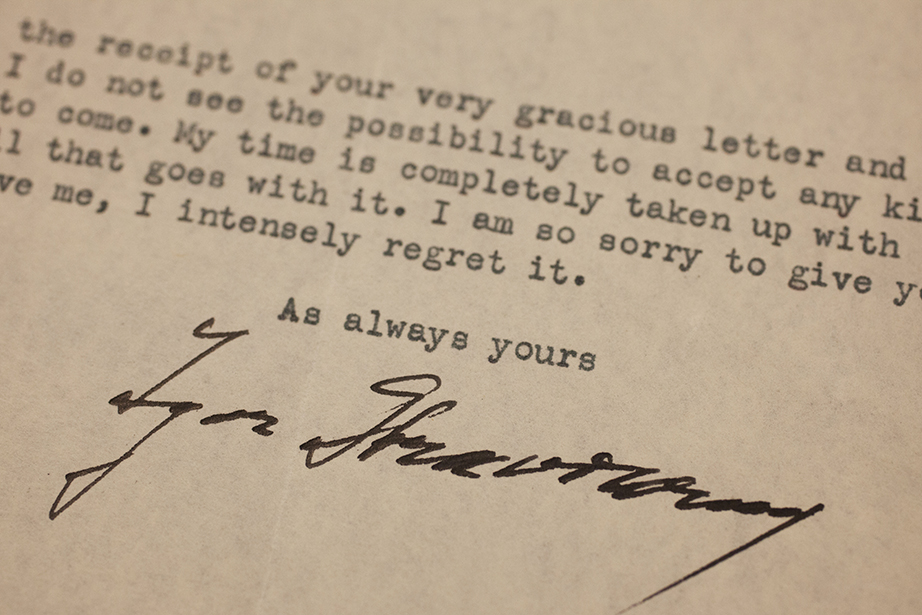 the receipt of your very gracious letter and
I do not see the possibility to accept any ki
to come. My time is completely taken up with
ll that goes with it. I am so sorry to give y
ve me, I intensely regret it.
As always yours
Igor Strawinsky